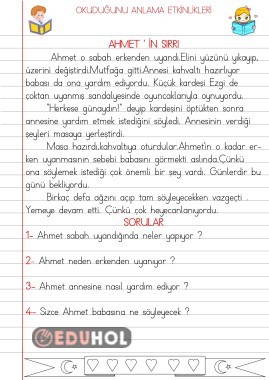 OKUDUĞUNU ANLAMA ETKİNLİKLERİ
AHMET ' İN SIRRI
Ahmet o sabah erkenden uyandı.Elini yüzünü yıkayıp,
üzerini değiştirdi.Mutfağa gitti.Annesi kahvaltı hazırlıyor
babası da ona yardım ediyordu. Küçük kardeşi Ezgi de
çoktan uyanmış sandalyesinde oyuncaklarıyla oynuyordu.
"Herkese günaydın!" deyip kardeşini öptükten sonra
annesine yardım etmek istediğini söyledi. Annesinin verdiği
şeyleri masaya yerleştirdi.
Masa hazırdı,kahvaltıya oturdular.Ahmet'in o kadar er-
ken uyanmasının sebebi babasını görmekti aslında.Çünkü
ona söylemek istediği çok önemli bir şey vardı. Günlerdir bu
günü bekliyordu.
Birkaç defa ağzını açıp tam söyleyecekken vazgeçti .
Yemeye devam etti. Çünkü çok heyecanlanıyordu.
SORULAR
1- Ahmet sabah uyandığında neler yapıyor ?
2- Ahmet neden erkenden uyanıyor ?
3- Ahmet annesine nasıl yardım ediyor ?
4- Sizce Ahmet babasına ne söyleyecek ?
EDUHOL